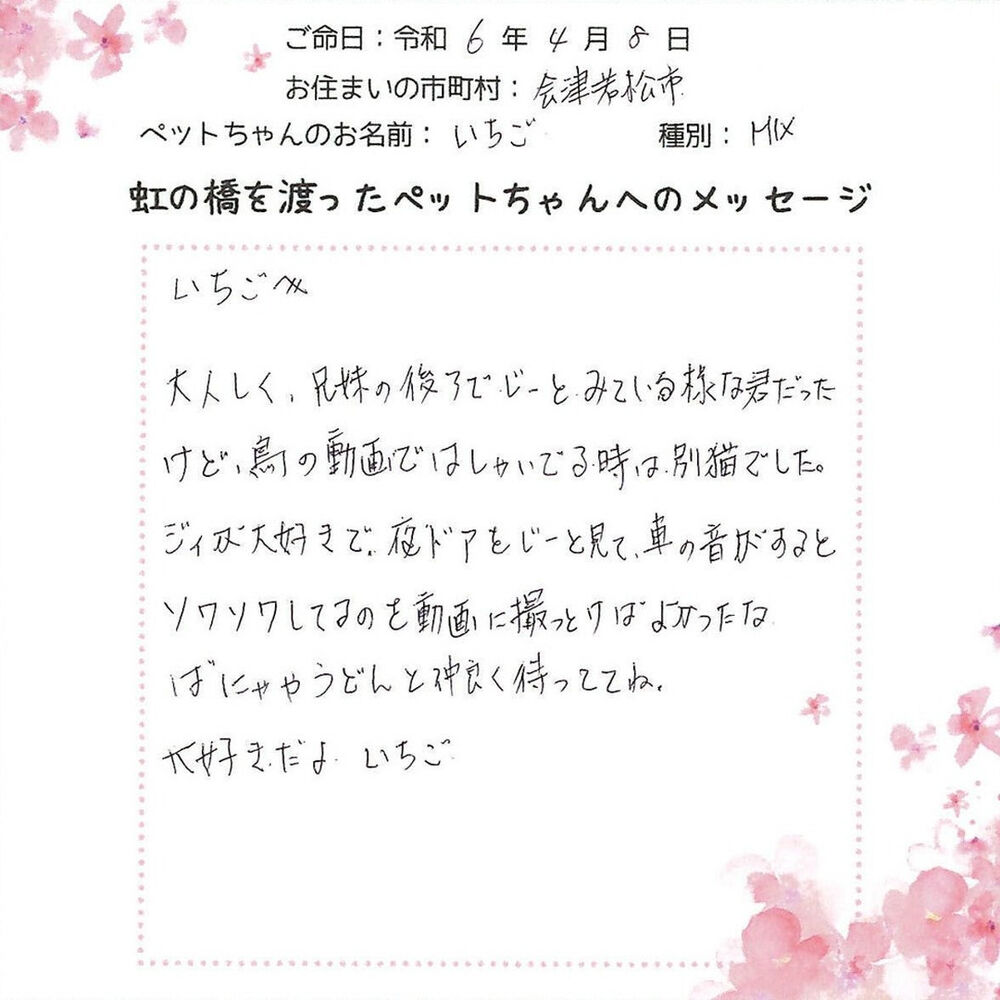 ご命日：令和 6 年 4 月 8 日
お住まいの市町村：会津若松市
ペットちゃんのお名前：いちご 種別：MIX
虹の橋を渡ったペットちゃんへのメッセージ
いちごへ
大人しく、兄妹の後ろでじーと、みている様な君だった
けど、鳥の動画ではしゃいでる時は、別猫でした。
ジィが大好きで、夜ドアをじーと見て、車の音がすると
ソワソワしてるのを動画に撮っとけばよかったな
ばにゃやうどんと仲良く待っててね。
大好きだよ いちご